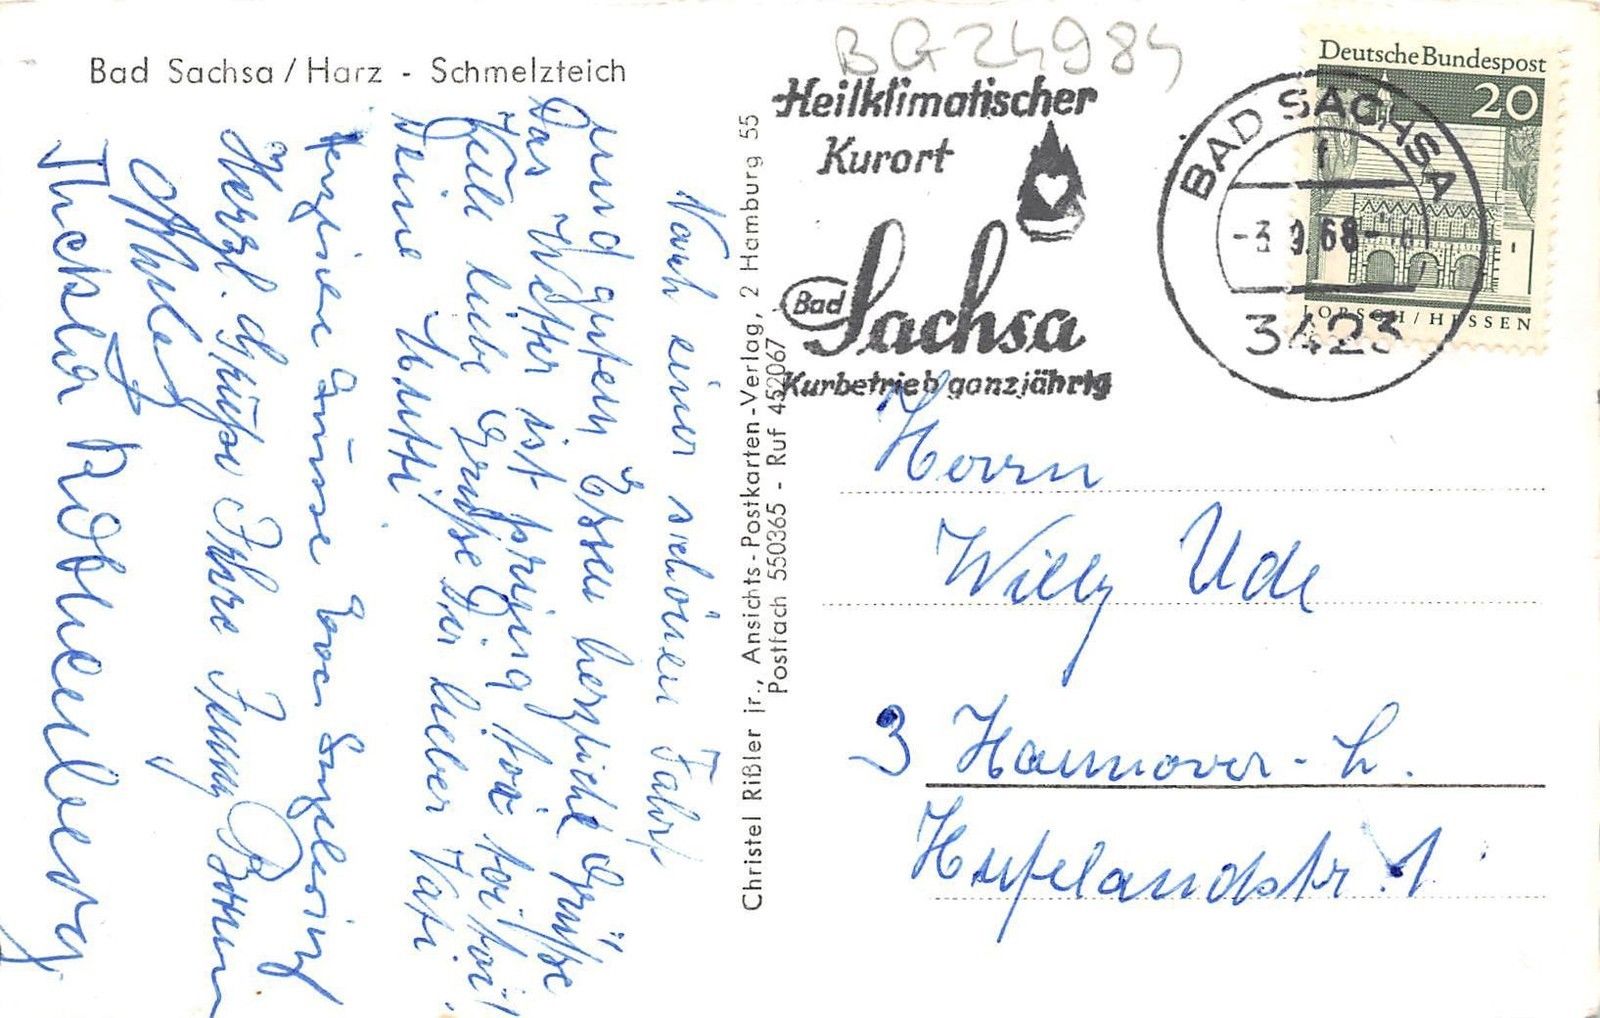 Bad Sachsa / Harz - Schmelzteich
BG 24984
Heilklimatischer
Kurort
Bad Sachsa
Kurbetrieb ganzjährig
BAD SACHSA
f
-3.9.68-
3423
Deutsche Bundespost
20
LORSCH / HESSEN
Christel Rißler jr., Ansichts-Postkarten-Verlag, 2 Hamburg 55
Postfach 550365 - Ruf 452067
Nach einer schönen Fahrt
und gutem Essen herzliche Grüße
Das Wetter ist
liebe Grüße Dir lieber Vati
Deine Mutti
Grüsse
Herzl. Grüße Ihre
Thekla Rothenberg
Herrn
Willy Ude
3 Hannover-L.
Hufelandstr. 1